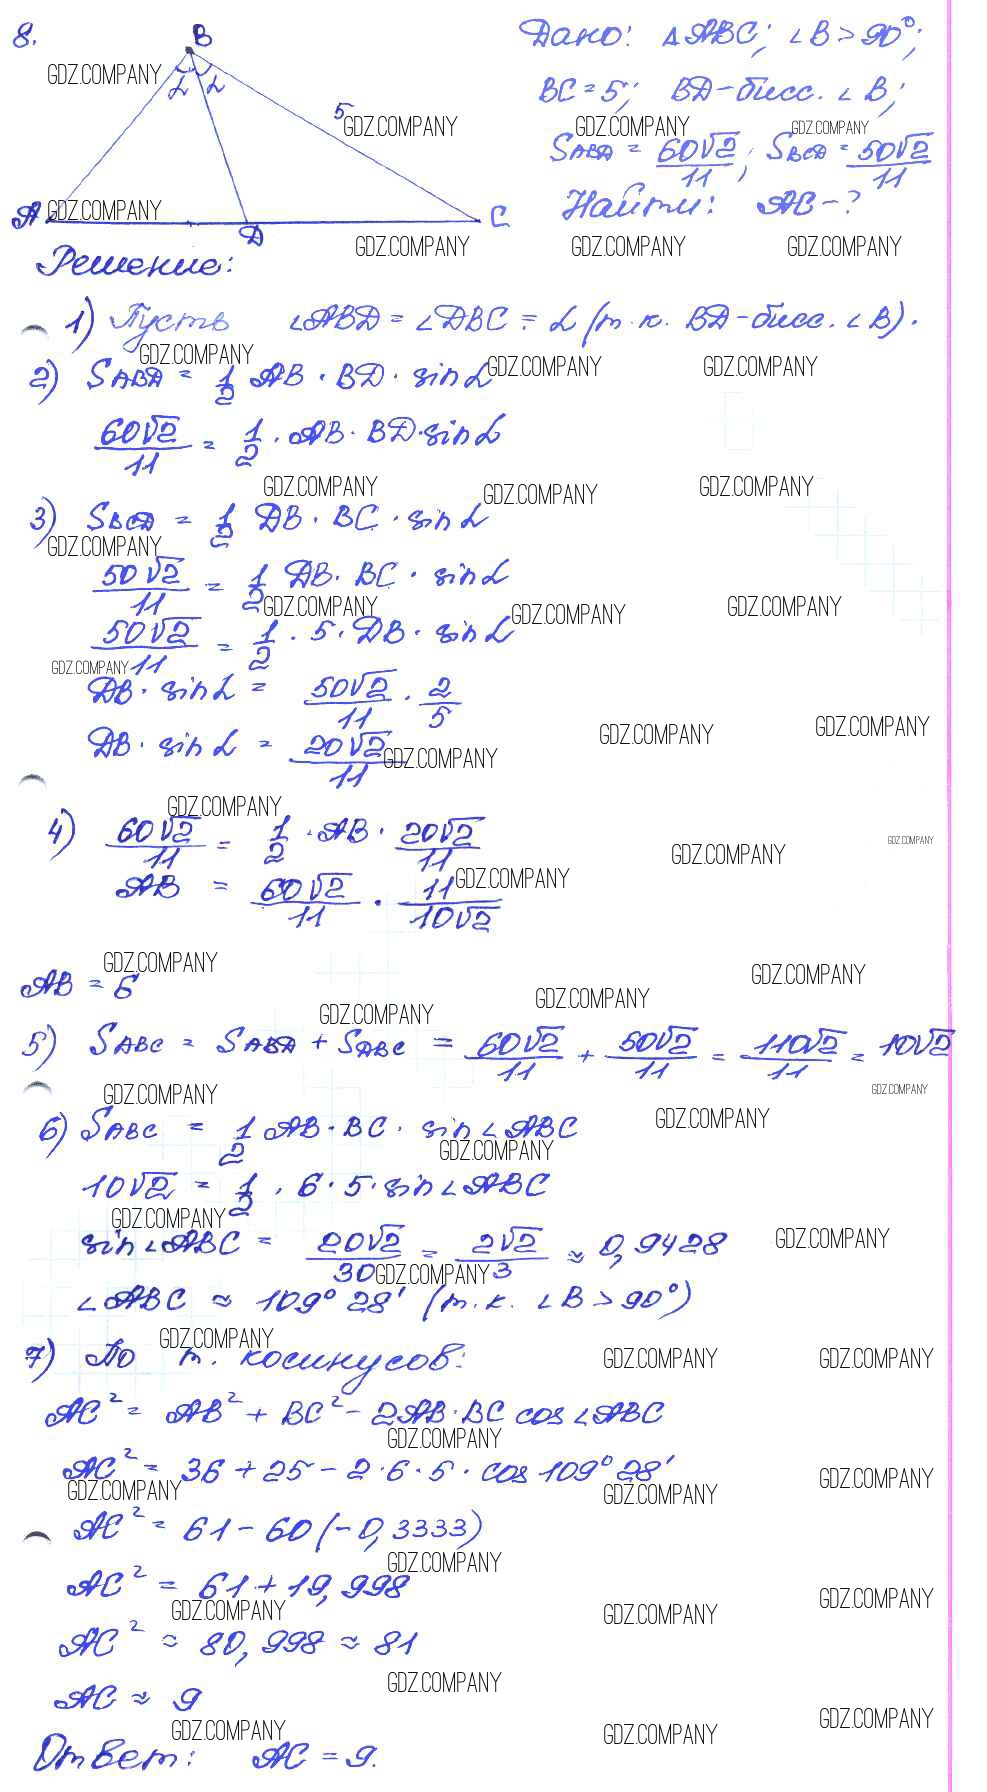 8.
B
α α
5
A
D
C
Дано: △ABC; ∠B > 90°;
BC = 5; BD - бисс. ∠B;
S_ABD = 60√2/11; S_BCD = 50√2/11
Найти: AC - ?
Решение:
1) Пусть ∠ABD = ∠DBC = α (т.к. BD - бисс. ∠B).
2) S_ABD = 1/2 AB · BD · sin α
60√2/11 = 1/2 · AB · BD · sin α
3) S_BCD = 1/2 DB · BC · sin α
50√2/11 = 1/2 DB · BC · sin α
50√2/11 = 1/2 · 5 · DB · sin α
DB · sin α = 50√2/11 · 2/5
DB · sin α = 20√2/11
4) 60√2/11 = 1/2 · AB · 20√2/11
AB = 60√2/11 · 11/10√2
AB = 6
5) S_ABC = S_ABD + S_DBC = 60√2/11 + 50√2/11 = 110√2/11 = 10√2
6) S_ABC = 1/2 AB · BC · sin ∠ABC
10√2 = 1/2 · 6 · 5 · sin ∠ABC
sin ∠ABC = 20√2/30 = 2√2/3 ≈ 0,9428
∠ABC ≈ 109° 28' (т.к. ∠B > 90°)
7) По т. косинусов:
AC² = AB² + BC² - 2AB · BC cos ∠ABC
AC² = 36 + 25 - 2 · 6 · 5 · cos 109° 28'
AC² = 61 - 60 (-0,3333)
AC² = 61 + 19,998
AC² ≈ 80,998 ≈ 81
AC ≈ 9
Ответ: AC = 9.
GDZ.COMPANY